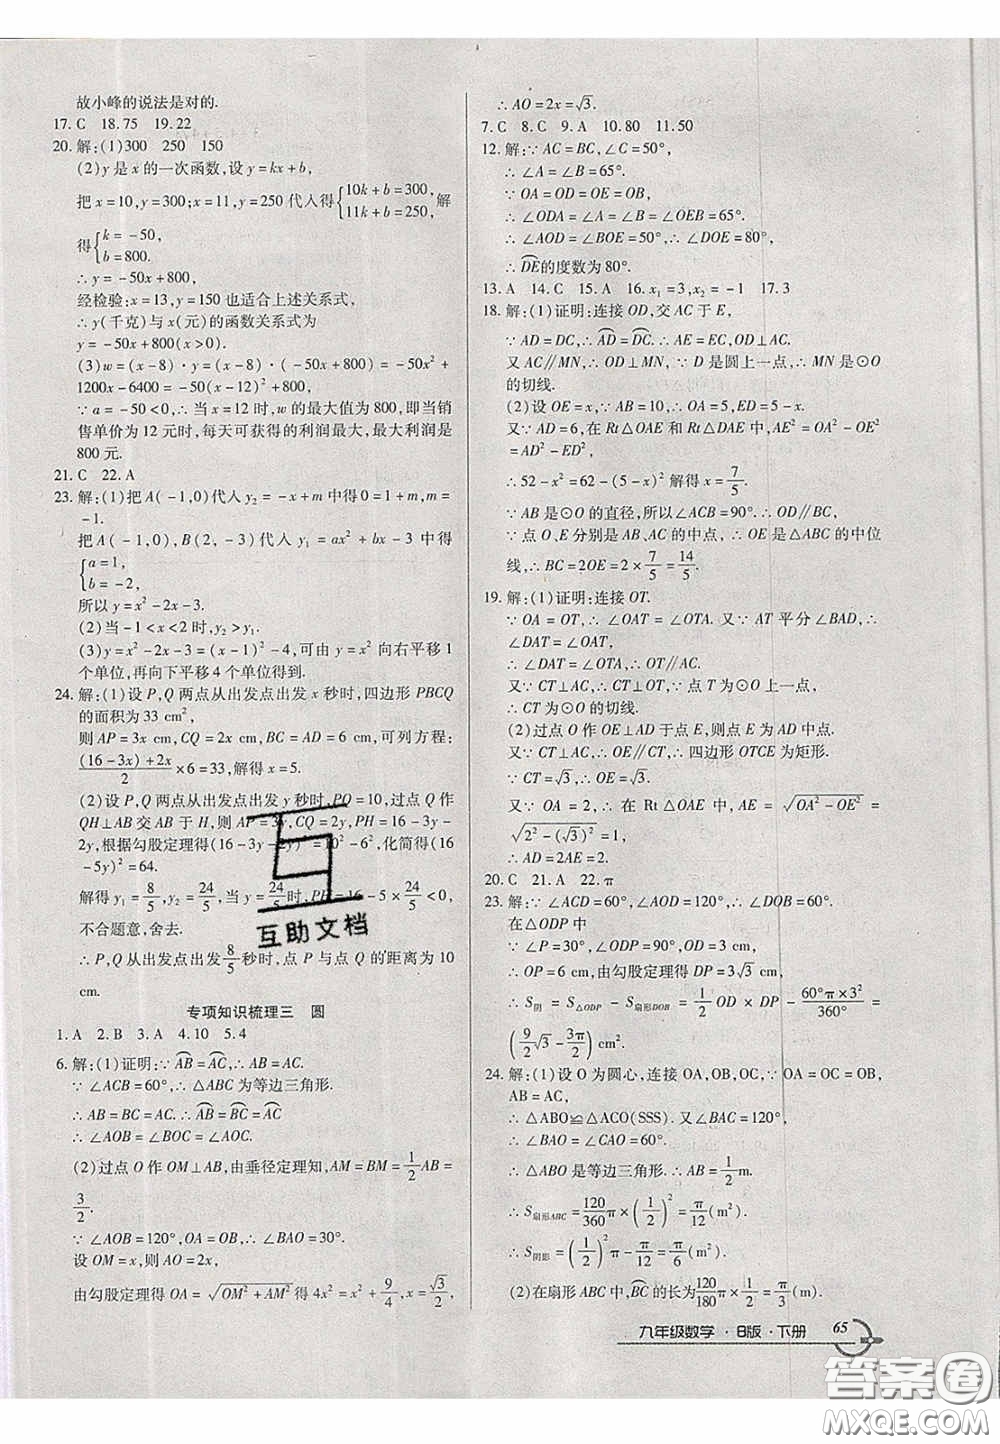 故小峰的说法是对的.
17. C 18. 75 19. 22
20. 解:(1)300 250 150
(2)y是x的一次函数,设y=kx+b,
把x=10,y=300;x=11,y=250代入得{10k+b=300, 11k+b=250, 解
得{k=-50, b=800.
∴y=-50x+800,
经检验:x=13,y=150也适合上述关系式,
∴y(千克)与x(元)的函数关系式为
y=-50x+800(x>0).
(3)w=(x-8)·y=(x-8)·(-50x+800)=-50x²+
1200x-6400=-50(x-12)²+800
∵a=-50<0,∴当x=12时,w的最大值为800,即当销
售单价为12元时,每天可获得的利润最大,最大利润是
800元.
21. C 22. A
23. 解:(1)把A(-1,0)代入y₂=-x+m中得0=1+m,m=
-1.
把A(-1,0),B(2,-3)代入y₁=ax²+bx-3中得
{a=1, b=-2.
所以y=x²-2x-3.
(2)当-1<x<2时,y₂>y₁.
(3)y=x²-2x-3=(x-1)²-4,可以由y=x²向右平移1
个单位,再向下平移4个单位得到.
24. 解:(1)设P,Q两点从出发点出发x秒时,四边形PBCQ
的面积为33 cm²,
则AP=3x cm,CQ=2x cm,BC=AD=6 cm,可列方程:
(16-3x)+2x/2×6=33,解得x=5.
(2)设P,Q两点从出发点出发y秒时,PQ=10,过点Q作
QH⊥AB交AB于H,则AP=3y,CQ=2y,PH=16-3y-
2y,根据勾股定理得(16-3y-2y)²=10²-6²,化简得(16
-5y)²=64.
解得y₁=8/5,y₂=24/5,当y=24/5时,PH=16-5×24/5<0,
不合题意,舍去.
∴P,Q从出发点出发8/5秒时,点P与点Q的距离为10
cm.
专项知识梳理三 圆
1. A 2. B 3. A 4. 10 5. 4
6. 解:(1)证明:∵AB⌒=AC⌒,∴AB=AC.
∵∠ACB=60°,∴△ABC为等边三角形.
∴AB=BC=AC.∴AB⌒=BC⌒=AC⌒
∴∠AOB=∠BOC=∠AOC.
(2)过点O作OM⊥AB,由垂径定理知,AM=BM=1/2AB=
3/2.
∵∠AOB=120°,OA=OB,∴∠BAO=30°.
设OM=x,则AO=2x,
由勾股定理得OA=√(OM²+AM²)得4x²=x²+9/4,x=√3/2,
∴AO=2x=√3.
7. C 8. C 9. A 10. 80 11. 50
12. 解:∵AC=BC,∠C=50°,
∴∠A=∠B=65°.
∵OA=OD=OE=OB,
∴∠ODA=∠A=∠B=∠OEB=65°.
∴∠AOD=∠BOE=50°,∴∠DOE=80°,
∴DE⌒的度数为80°.
13. A 14. C 15. A 16. x₁=3,x₂=-1 17. 3
18. 解:(1)证明:连接OD,交AC于E,
∵AD=DC,∴AD⌒=DC⌒.∴AE=EC,OD⊥AC.
又AC∥MN,∴OD⊥MN,∵D是圆上一点,∴MN是⊙O
的切线.
(2)设OE=x,∵AB=10,∴OA=5,ED=5-x.
又∵AD=6,在Rt△OAE和Rt△DAE中,AE²=OA²-OE²
=AD²-ED²,
∴5²-x²=6²-(5-x)².解得x=7/5.
∵AB是⊙O的直径,所以∠ACB=90°.∴OD∥BC,
∵点O、E分别是AB、AC的中点,∴OE是△ABC的中位
线,∴BC=2OE=2×7/5=14/5.
19. 解:(1)证明:连接OT.
∵OA=OT,∴∠OAT=∠OTA.又∵AT平分∠BAD,∴
∠DAT=∠OAT,
∴∠DAT=∠OTA,∴OT∥AD.
又∵CT⊥AC,∴CT⊥OT,∵点T为⊙O上一点,
∴CT为⊙O的切线.
(2)过点O作OE⊥AD于点E,则点E为AD中点.
又∵CT⊥AC,∴OE∥CT,∴四边形OTCE为矩形.
∵CT=√3,∴OE=√3.
又∵OA=2,∴在Rt△OAE中,AE=√(OA²-OE²)=
√(2²-(√3)²)=1,
∴AD=2AE=2.
20. C 21. A 22. π
23. 解:∵∠ACD=60°,∠ODP=90°,∴∠DOB=60°.
在△ODP中
∵∠P=30°,∠ODP=90°,OD=3 cm,
∴OP=6 cm,由勾股定理得DP=3√3 cm,
∴S阴=S△ODP-S扇形DOB=1/2OD×DP-60°π×3²/360°=
(9/2√3-3π/2)cm².
24. 解:(1)设O为圆心,连接OA,OB,OC,∵OA=OC=OB,
AB=AC,
∴△ABO≌△ACO(SSS).又∠BAC=120°,
∴∠BAO=∠CAO=60°.
∴△ABO是等边三角形.∴AB=1/2m.
∴S扇形ABC=120/360π×(1/2)²=π/12(m²).
∴S阴影=π(1/2)²π-π/12=π/6(m²).
(2)在扇形ABC中,BC⌒的长为120/180π×1/2=π/3(m).
九年级数学·B版·下册 65
互助文档
答案圈
MXQE.COM